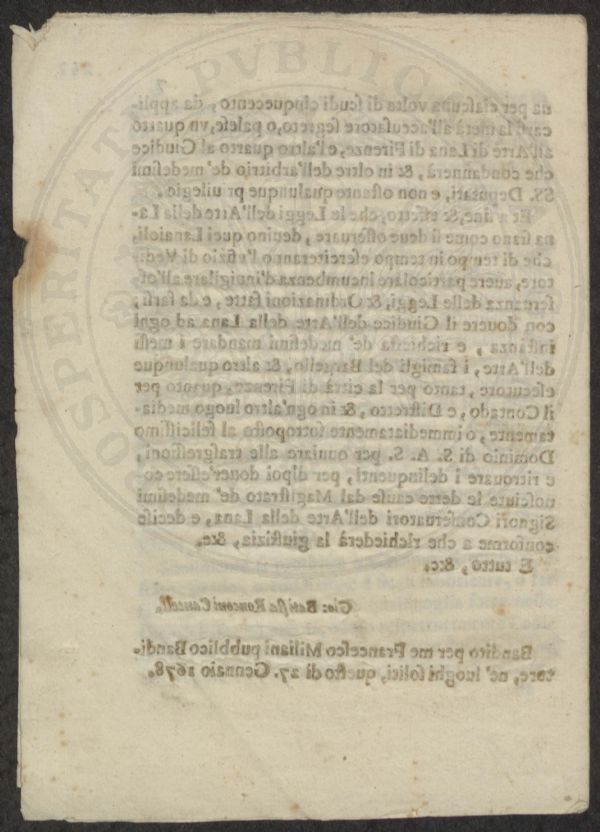 na per ciaſcuna volta di ſcudi cinquecento, da appli-
carſi la metà all'accuſatore ſegreto, o paleſe, vn quarto
all'Arte di Lana di Firenze, e l'altro quarto al Giudice
che condannerà, & in oltre dell'arbitrio de' medeſimi
SS. Deputati, e non oſtante qualunque priuilegio.
Et a fine, & effetto, che le Leggi dell'Arte della La-
na ſiano come ſi deue oſſeruare, deuino quei Lanaioli,
che di tempo in tempo eſerciteranno l'ufizio di Vedi-
tore, auere particolare incumbenza d'inuigilare all'oſ-
ſeruanza delle Leggi, & Ordinazioni fatte, e da farſi,
con douere il Giudice dell'Arte della Lana ad ogni
inſtanza, e richieſta de' medeſimi mandare i meſſi
dell'Arte, i famigli del Bargello, & altro qualunque
eſecutore, tanto per la città di Firenze, quanto per
il Contado, e Diſtretto, & in ogn'altro luogo media-
tamente, o immediatamente ſottopoſto al feliciſſimo
Dominio di S. A. S. per ouuiare alle traſgreſſioni,
e ritrouare i delinquenti, per dipoi douer'eſſere co-
noſciute le dette cauſe dal Magiſtrato de' medeſimi
Signori Conſeruatori dell'Arte della Lana, e deciſe
conforme a che richiederà la giuſtizia, &c.
E tutto, &c.
Gio: Batiſta Ronconi Cancell.
Bandito per me Franceſco Miliani pubblico Bandi-
tore, ne' luoghi ſoliti, queſto dì 27. Gennaio 1678.
OSPERITATI PVBLICAE